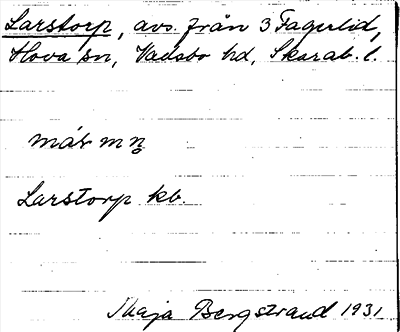 Larstorp, avs. från 3 Fagerlid,
Hova sn, Vadsbo hd, Skarab. l.
Larstorp kb.
Maja Bergstrand 1931